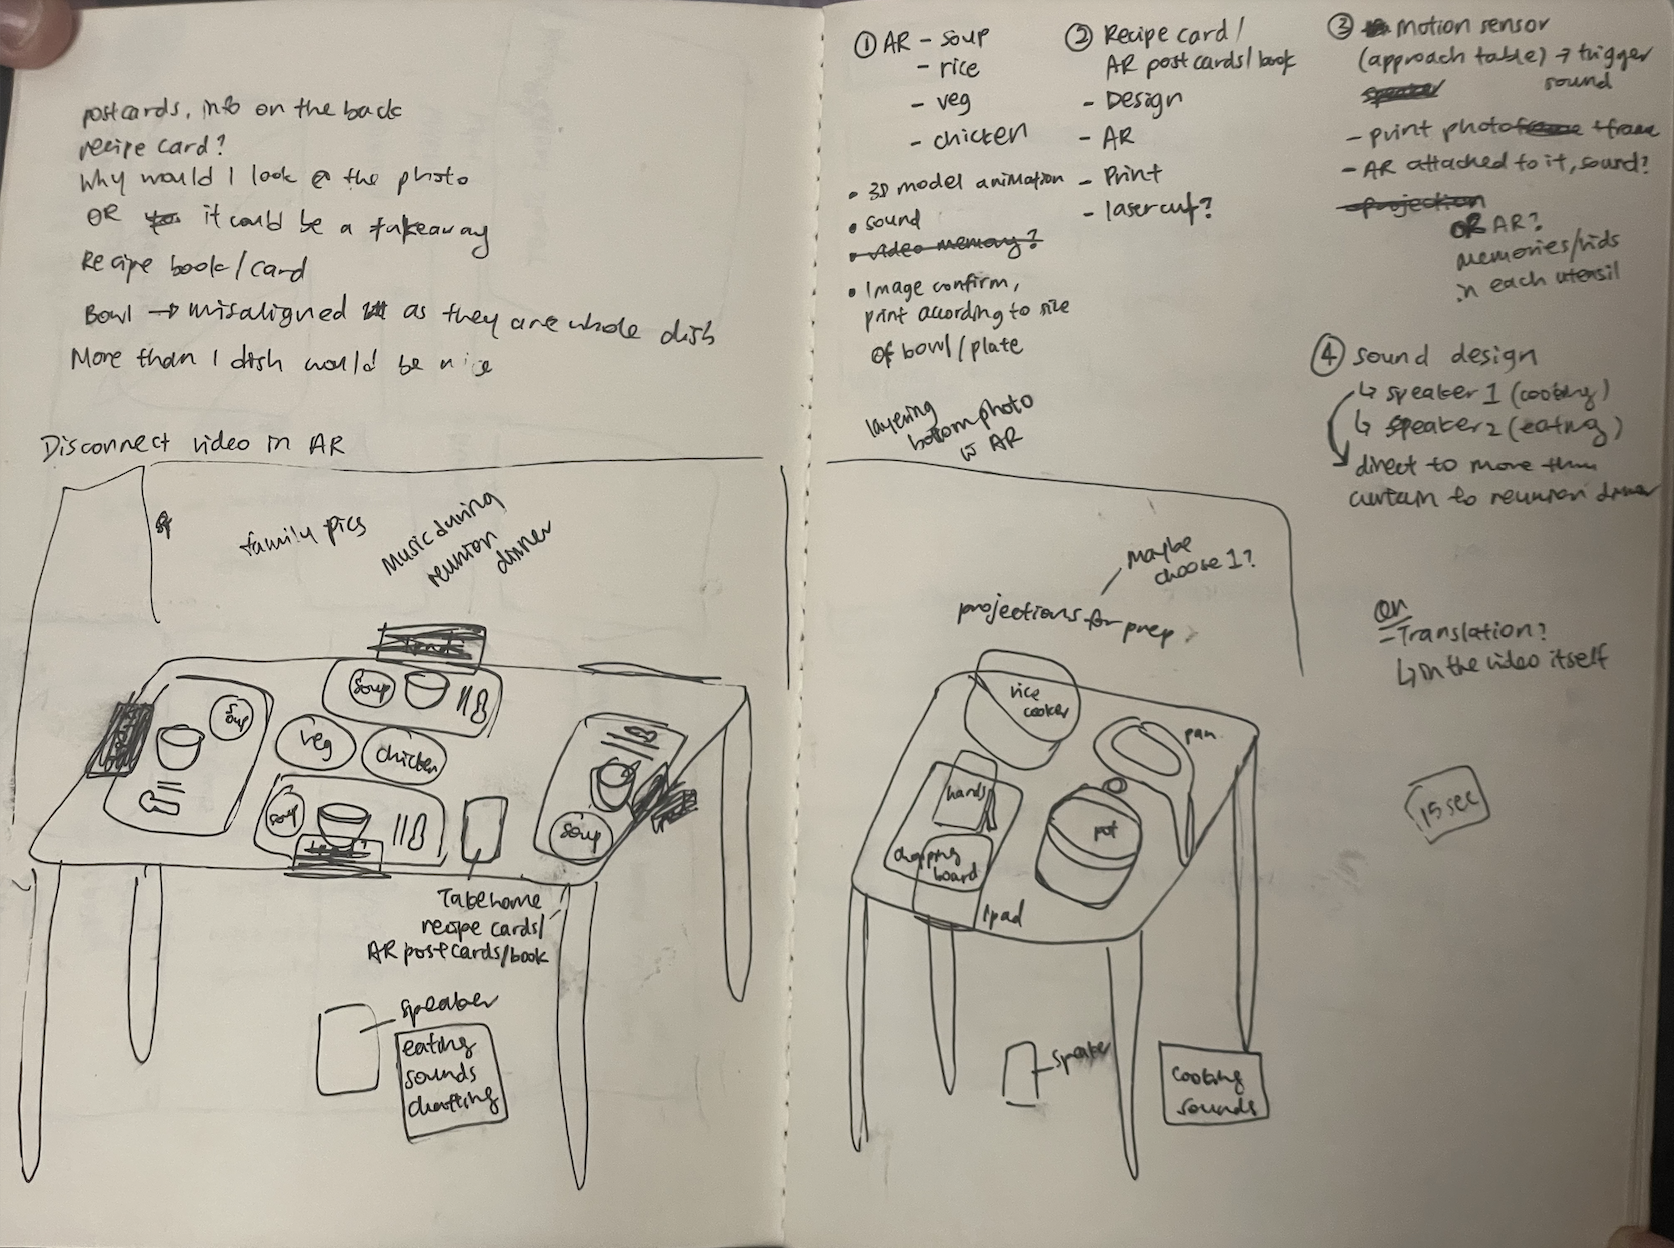 postcards, info on the back
recipe card?
Why would I look @ the photo
OR it could be a takeaway
Recipe book/card
Bowl → misaligned as they are whole dish
More than 1 dish would be nice
Disconnect video in AR
family pics
Music during
reunion
dinner
soup
soup
veg
chicken
soup
soup
Takehome
recipe cards/
AR postcards/book
speaker
eating
sounds
chatting
① AR - soup
- rice
- veg
- chicken
• 3D model animation
• sound
• video memory?
• Image confirm,
print according to size
of bowl/plate
layering
bottom photo
w AR
② Recipe card/
AR postcards/book
- Design
- AR
- Print
- lasercut?
③ Motion sensor
(approach table) → trigger
sound
speaker
- print photo frame + frame
- AR attached to it, sound?
- projection
OR AR?
memories/vids
in each utensil
④ sound design
↳ speaker 1 (cooking)
↳ speaker 2 (eating)
direct to more than
curtain to reunion dinner
Maybe
choose 1?
projections for prep
- Translation?
↳ in the video itself
15 sec
rice
cooker
pan
hands
pot
chopping
board
ipad
speaker
cooking
sounds